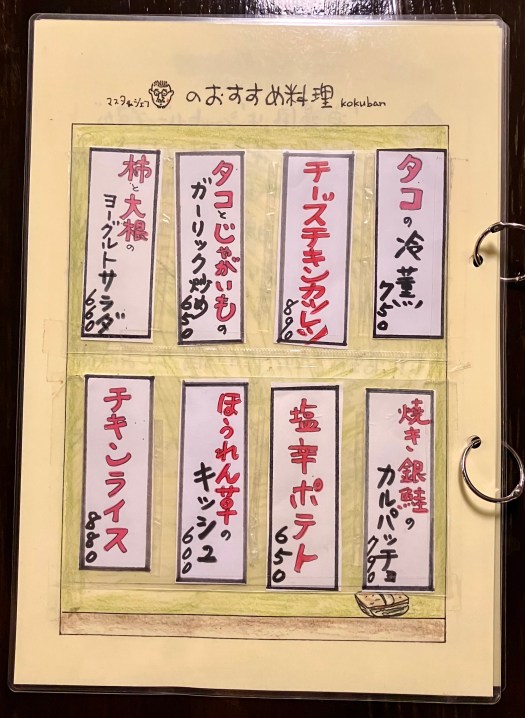 マスター&シェフ のおすすめ料理 kokuban
タコの冷薫
750
チーズチキンカツレツ
890
タコとじゃがいもの
ガーリック炒め
650
柿と大根の
ヨーグルトサラダ
660
焼き銀鮭の
カルパッチョ
790
塩辛ポテト
650
ほうれん草の
キッシュ
600
チキンライス
880